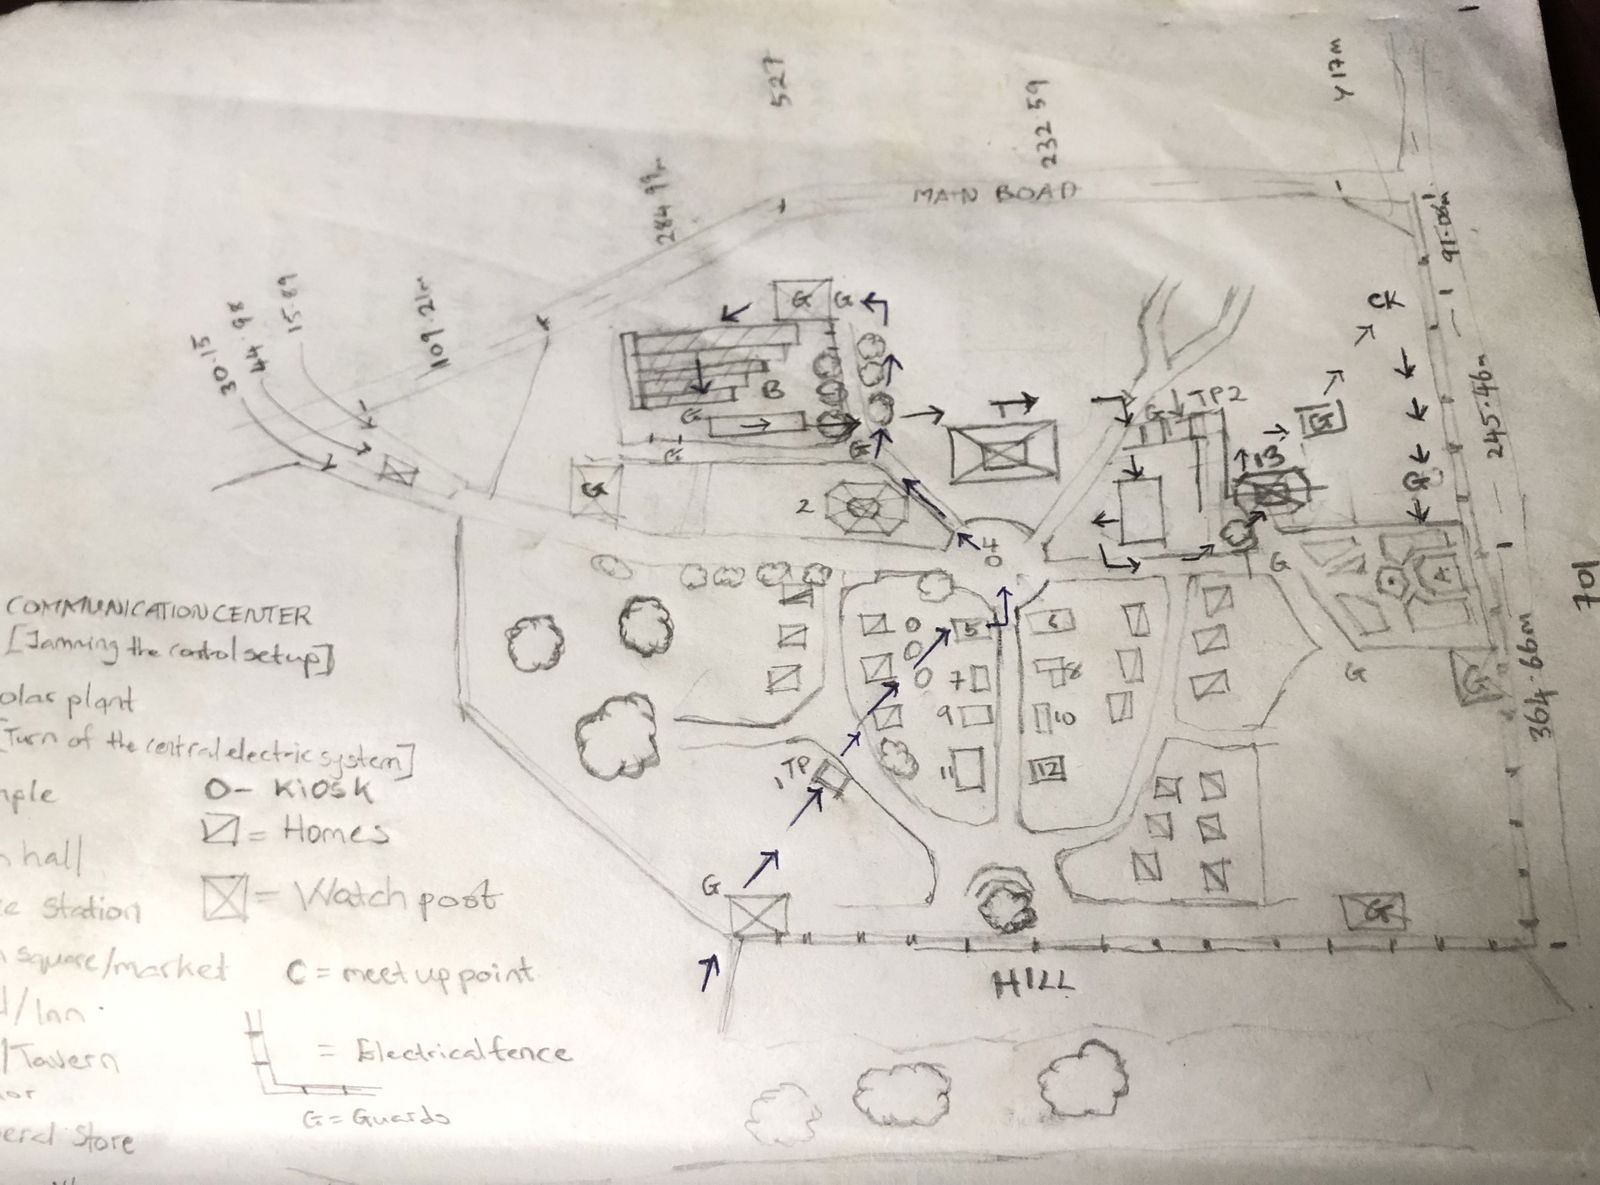 527
232 59
417m
284 99m
MAIN BOAD
15 89
44.98
30.15
109.21m
91.06m
G
G
CK
B
G
TP2
G
T
G
245.46m
G
G
G
13
G
G
2
4
0
G
A
701
COMMUNICATION CENTER
[Jamming the control setup]
0
5
6
0
0
7
8
G
G
364.66m
olar plant
[Turn of the central electric system]
9
10
TP
1
11
12
mple
O- KIOSK
= Homes
n hall
G
= Watch post
G
ce Station
n square/market
C = meet up point
HILL
l/Inn
/Tavern
= Electrical fence
or
G = Guards
eral Store